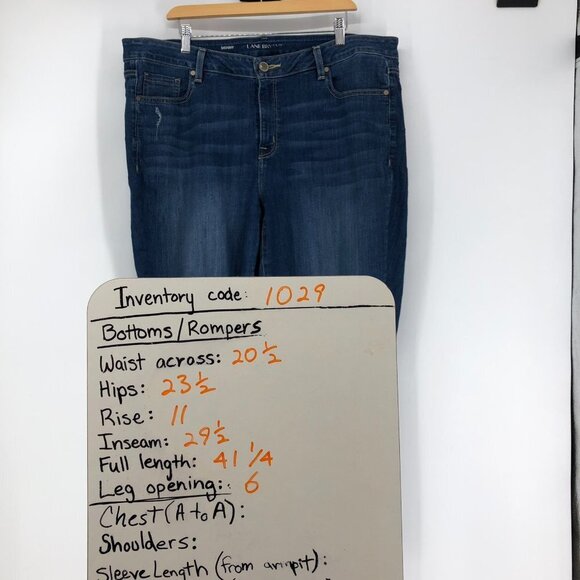 SKINNY LANE BRYANT
Inventory code: 1029
Bottoms/Rompers
Waist across: 20 1/2
Hips: 23 1/2
Rise: 11
Inseam: 29 1/2
Full length: 41 1/4
Leg opening: 6
Chest (A to A):
Shoulders:
Sleeve Length (from armpit):